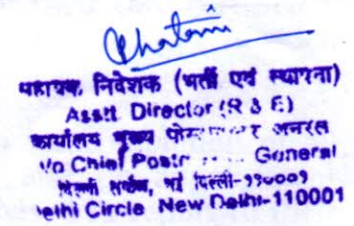 सहायक निदेशक (भर्ती एवं स्थापना)
Asstt Director (R & E)
कार्यालय मुख्य जनरल
o Chief General
दिल्ली सर्कल, नई दिल्ली-110001
elhi Circle New Delhi-110001